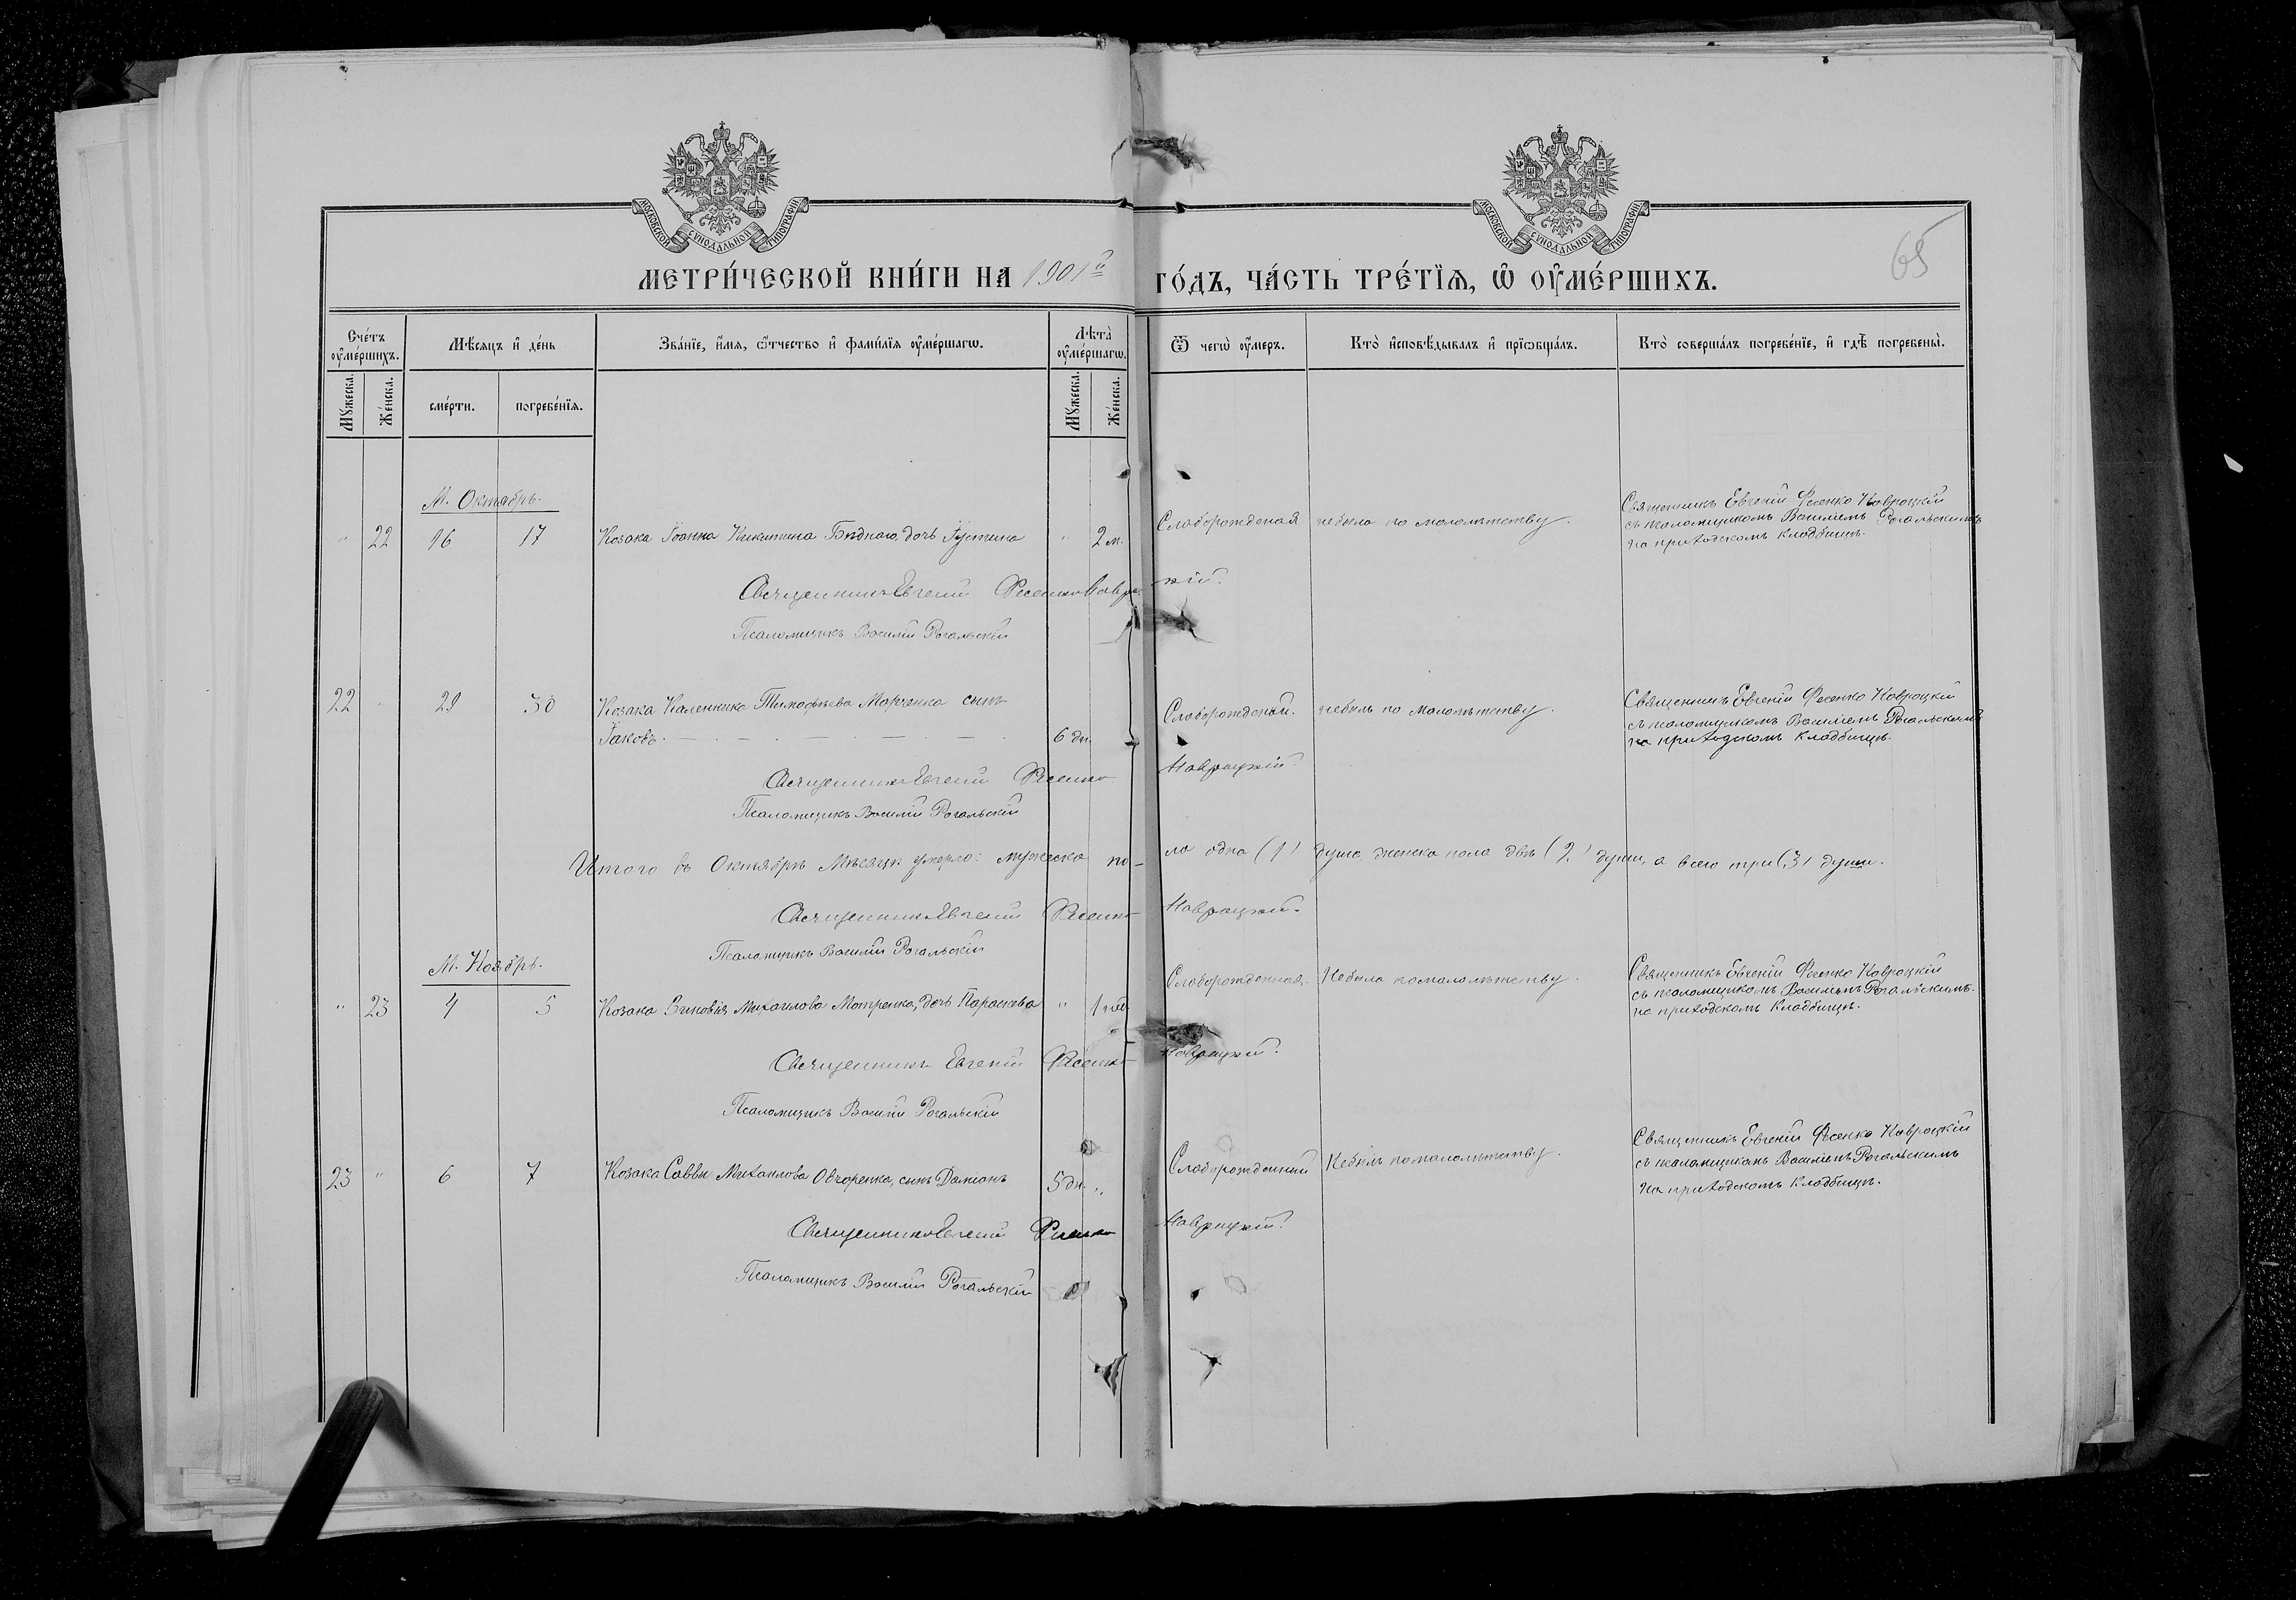 МОСКОВСКОЙ СУНОДАЛЬНОЙ ТИПОГРАФІИ
МОСКОВСКОЙ СУНОДАЛЬНОЙ ТИПОГРАФІИ
65
МЕТРИ́ЧЕСКОЙ КНИ́ГИ НА 1901й ГО́ДЪ, ЧА́СТЬ ТРЕ́ТЇѦ, Ѡ҆ ОУ҆МЕ́РШИХЪ.
Сче́тъ оу҆ме́ршихъ.
Мѣ́сяцъ и҆ де́нь
Зва́нїе, и҆́мя, ѻ҆́тчество и҆ фами́лїя оу҆ме́ршагѡ.
Лѣта̀ оу҆ме́ршагѡ.
Ѿ чегѡ̀ оу҆́меръ.
Кто̀ и҆сповѣ́дывалъ и҆ прїѡбща́лъ.
Кто̀ соверша́лъ погребе́нїе, и҆ гдѣ̀ погребены̀.
Мꙋ́жеска.
Же́нска.
сме́рти.
погребе́нїя.
Мꙋ́жеска.
Же́нска.
М. Октябрь.
" 22 16 17 Козака Іоанна Никитина Бѣднаго, дочь Іустина " 2 м. Слаборожденая небыла по малолѣтству. Священникъ Евгеній Фесенко Навроцкій
съ псаломщикомъ Василіемъ Рогальскимъ
на приходскомъ кладбищѣ.
Священникъ Евгеній Фесенко Навроцкій.
Псаломщикъ Василій Рогальскій
22 " 29 30 Козака Каленика Тимофѣева Марченка сынъ
Іаковъ. 6 дн. Слаборожденый. небылъ по малолѣтству. Священникъ Евгеній Фесенко Навроцкій
съ псаломщикомъ Василіемъ Рогальскимъ
на приходскомъ кладбищѣ.
Священникъ Евгеній Фесенко Навроцкій.
Псаломщикъ Василій Рогальскій
Итого въ Октябрѣ Мѣсяцѣ умерло: мужеска пола одна (1) душа, женска пола двѣ (2) души, а всего три (3) души.
Священникъ Евгеній Фесенко Навроцкій.
Псаломщикъ Василій Рогальскій
М. Ноябрь.
" 23 4 5 Козака Зиновія Михаилова Мотренка, дочь Параскева " 1 Слаборожденная. Небыла по малолѣтству. Священникъ Евгеній Фесенко Навроцкій
съ псаломщикомъ Василіемъ Рогальскимъ.
на приходскомъ кладбищѣ.
Священникъ Евгеній Фесенко Навроцкій.
Псаломщикъ Василій Рогальскій
23 " 6 7 Козака Саввы Михаилова Овчаренка, сынъ Даміанъ 5 дн. " Слаборожденный Небылъ по малолѣтству. Священникъ Евгеній Фесенко Навроцкій
съ псаломщикомъ Василіемъ Рогальскимъ
на приходскомъ кладбищѣ.
Священникъ Евгеній Фесенко Навроцкій.
Псаломщикъ Василій Рогальскій